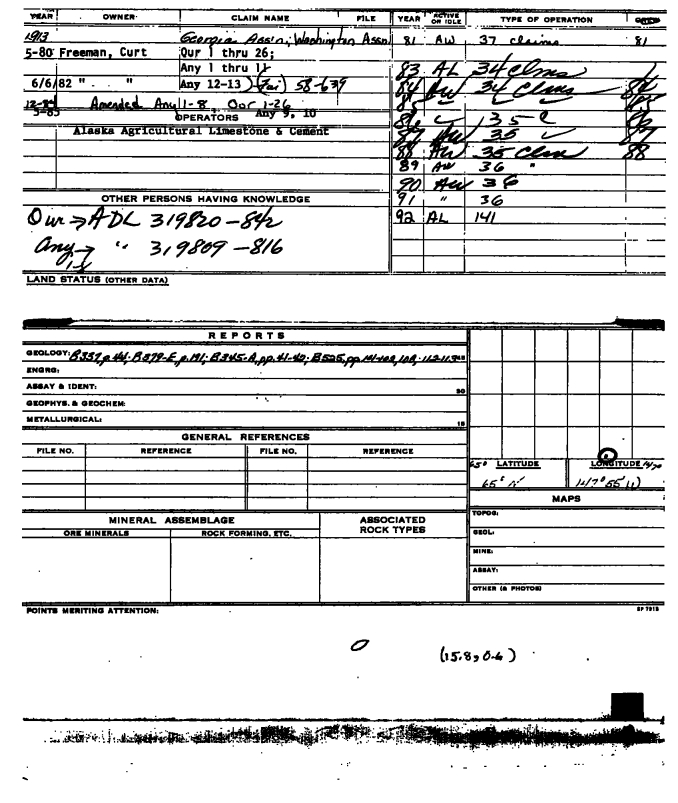 YEAR OWNER CLAIM NAME FILE YEAR ACTIVE OR IDLE TYPE OF OPERATION
1913 Georgia Assn; Washington Assn 81 AW 37 claims 81
5-80 Freeman, Curt Our 1 thru 26;
Any 1 thru 11 83 AL 34 clms
6/6/82 " " Any 12-13 (Fai) 58-639 84 AW 34 Clms 84
12-84 Amended Any 1-8, Our 1-26 85
5-85 OPERATORS Any 9, 10 86 35
Alaska Agricultural Limestone & Cement 87 AW 35 87
88 AW 35 Clms 88
89 AW 36 "
90 AW 36
OTHER PERSONS HAVING KNOWLEDGE 91 " 36
Our → ADL 319820-842 92 AL 141
Any → " 319809-816
1-8
LAND STATUS (OTHER DATA)
REPORTS
GEOLOGY: B337, p.44; B379-E, p.191; B345-A, pp.41-40; B525, pp.
ENGRG:
ASSAY & IDENT:
GEOPHYS. & GEOCHEM:
METALLURGICAL:
GENERAL REFERENCES
FILE NO. REFERENCE FILE NO. REFERENCE
65° LATITUDE LONGITUDE
65° 147° 55' W
MAPS
MINERAL ASSEMBLAGE ASSOCIATED ROCK TYPES TOPOG:
ORE MINERALS ROCK FORMING, ETC. GEOL:
MINE:
ASSAY:
OTHER (& PHOTOS)
POINTS MERITING ATTENTION:
(15.8, 0.6)